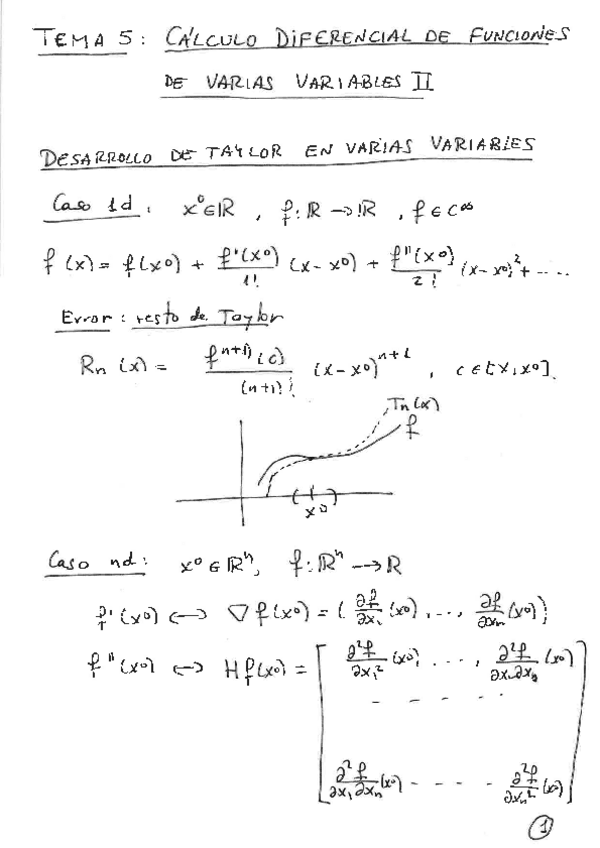 TEMA 5: CÁLCULO DIFERENCIAL DE FUNCIONES
DE VARIAS VARIABLES II
DESARROLLO DE TAYLOR EN VARIAS VARIABLES
Caso 1d: x⁰∈ℝ, f: ℝ → ℝ, f ∈ C^∞
f(x) = f(x⁰) + f'(x⁰)/1! (x-x⁰) + f''(x⁰)/2! (x-x⁰)² + ....
Error: resto de Taylor
Rn(x) = f^(n+1)(c)/(n+1)! (x-x⁰)^(n+1), c ∈ [x, x⁰].
Tn(x)
f
x⁰
Caso nd: x⁰ ∈ ℝⁿ, f: ℝⁿ → ℝ
f'(x⁰) ↔ ∇f(x⁰) = (∂f/∂x₁ (x⁰), ..., ∂f/∂xn (x⁰))
f''(x⁰) ↔ Hf(x⁰) = [ ∂²f/∂x₁² (x⁰), ..., ∂²f/∂xₙ∂x₁ (x⁰)
- - - - -
∂²f/∂x₁∂xn (x⁰) - - - - ∂²f/∂xn² (x⁰) ]
1